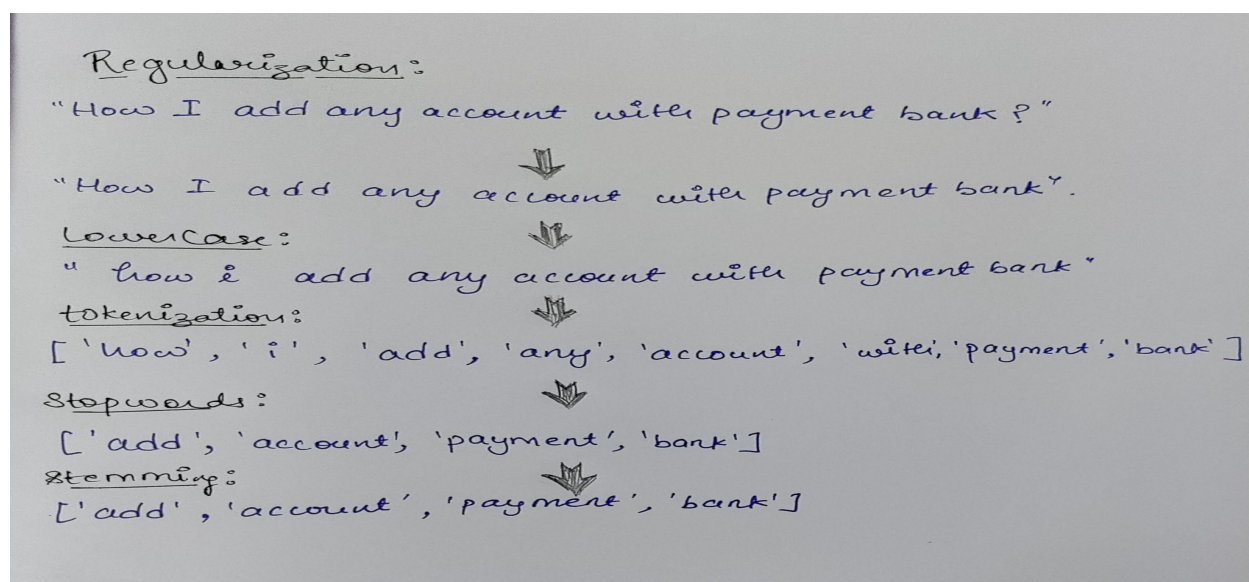 Regularization:
"How I add any account with payment bank?"
"How I add any account with payment bank".
Lowercase:
"how i add any account with payment bank"
tokenization:
['how', 'i', 'add', 'any', 'account', 'with', 'payment', 'bank']
Stopwords:
['add', 'account', 'payment', 'bank']
Stemming:
['add', 'account', 'payment', 'bank']